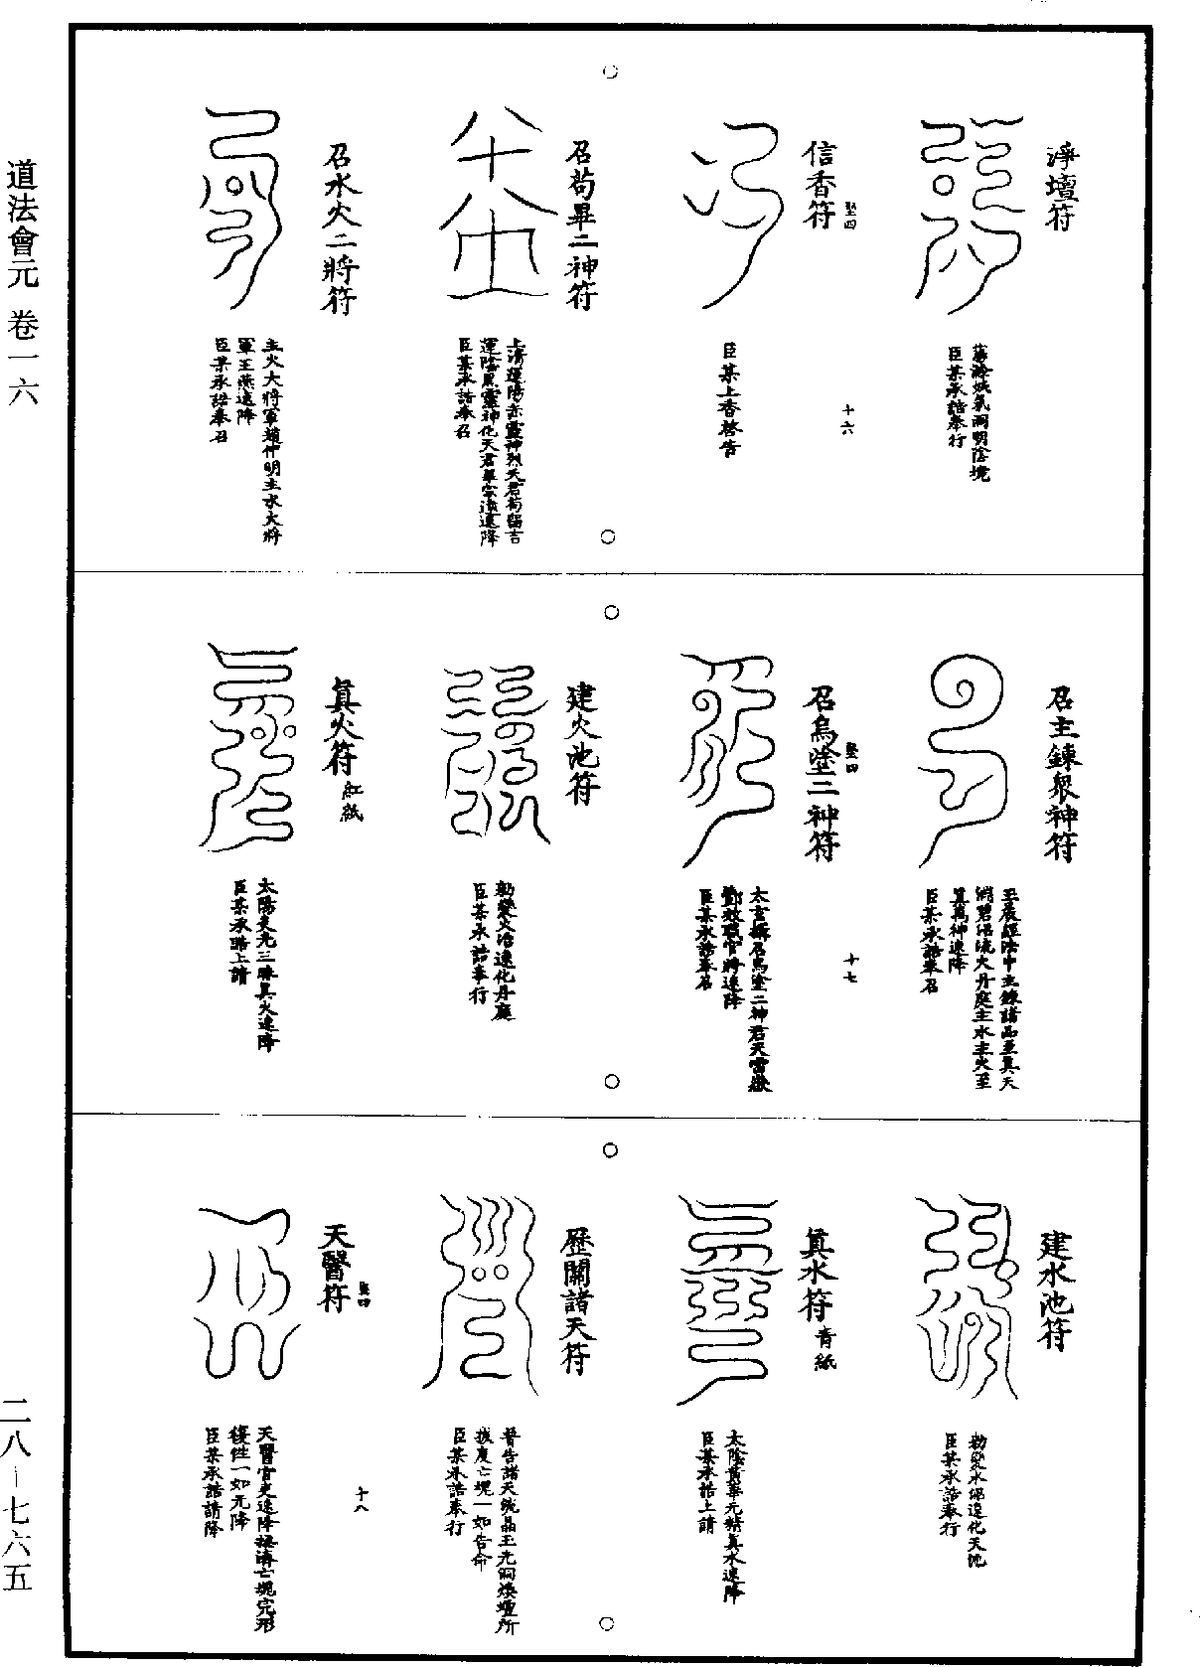 道法會元 卷一六
二八—七六五
淨壇符
蕩滌妖氛洞明陰境
臣某承誥奉行
信香符
臣某上香啓告
十六
召苟畢二神符
上清運陽赤靈神烈天君苟留吉
運陰黑靈神化天君畢宗遠速降
臣某承誥奉召
召水火二將符
主火大將軍趙仲明主水大將
軍王燕速降
臣某承誥奉召
召主鍊眾神符
主鍊諸品至真天
流火丹庭主水主火至
真萬神速降
臣某承誥奉召
召烏塗二神符
召烏塗二神君天
官將速降
臣某承誥奉召
十七
建火池符
勑變火沼速化丹庭
臣某承誥奉行
真火符
紅紙
太陽炎光三昧真火速降
臣某承誥上請
建水池符
臣某承誥奉行
真水符
青紙
太陰黃華元精真水速降
臣某承誥上請
歷關諸天符
普告諸天統晶玉光洞煥壇所
拔度亡魂一如告命
臣某承誥奉行
天醫符
天醫官吏速降拯濟亡魂完形
復性一如元降
臣某承誥請降
十八